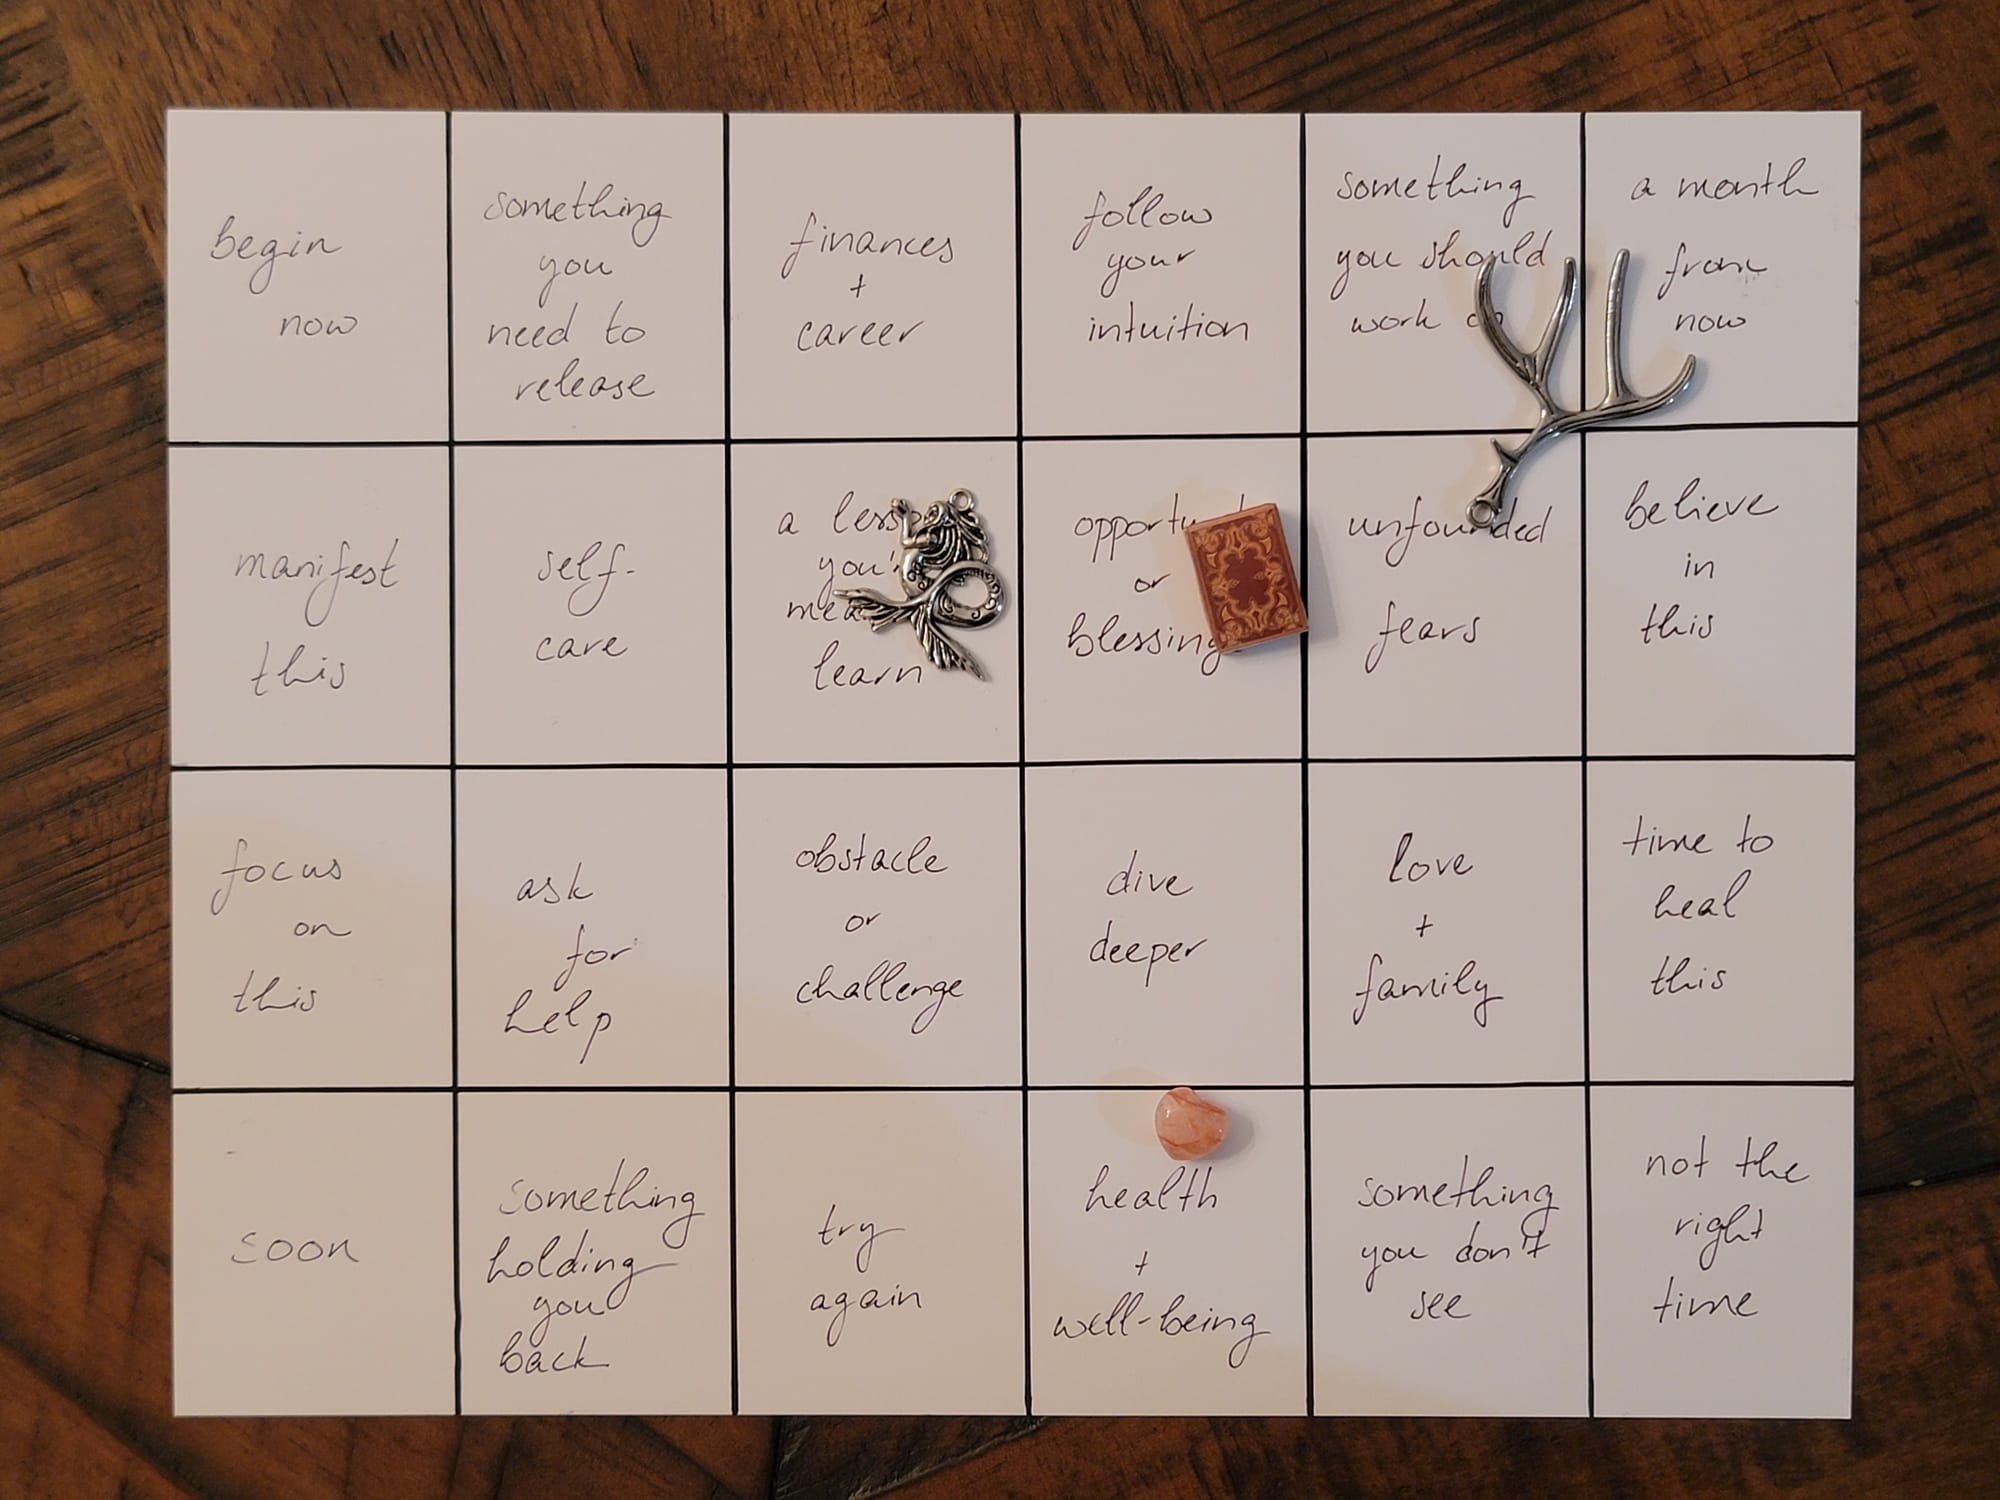 begin
now
something
you
need to
release
finances
+
career
follow
your
intuition
something
you should
work
a month
from
now
manifest
this
self-
care
a
learn
or
blessing
unfounded
fears
believe
in
this
focus
on
this
ask
for
help
obstacle
or
challenge
dive
deeper
love
+
family
time to
heal
this
soon
something
holding
you
back
try
again
health
+
well-being
something
you don't
see
not the
right
time